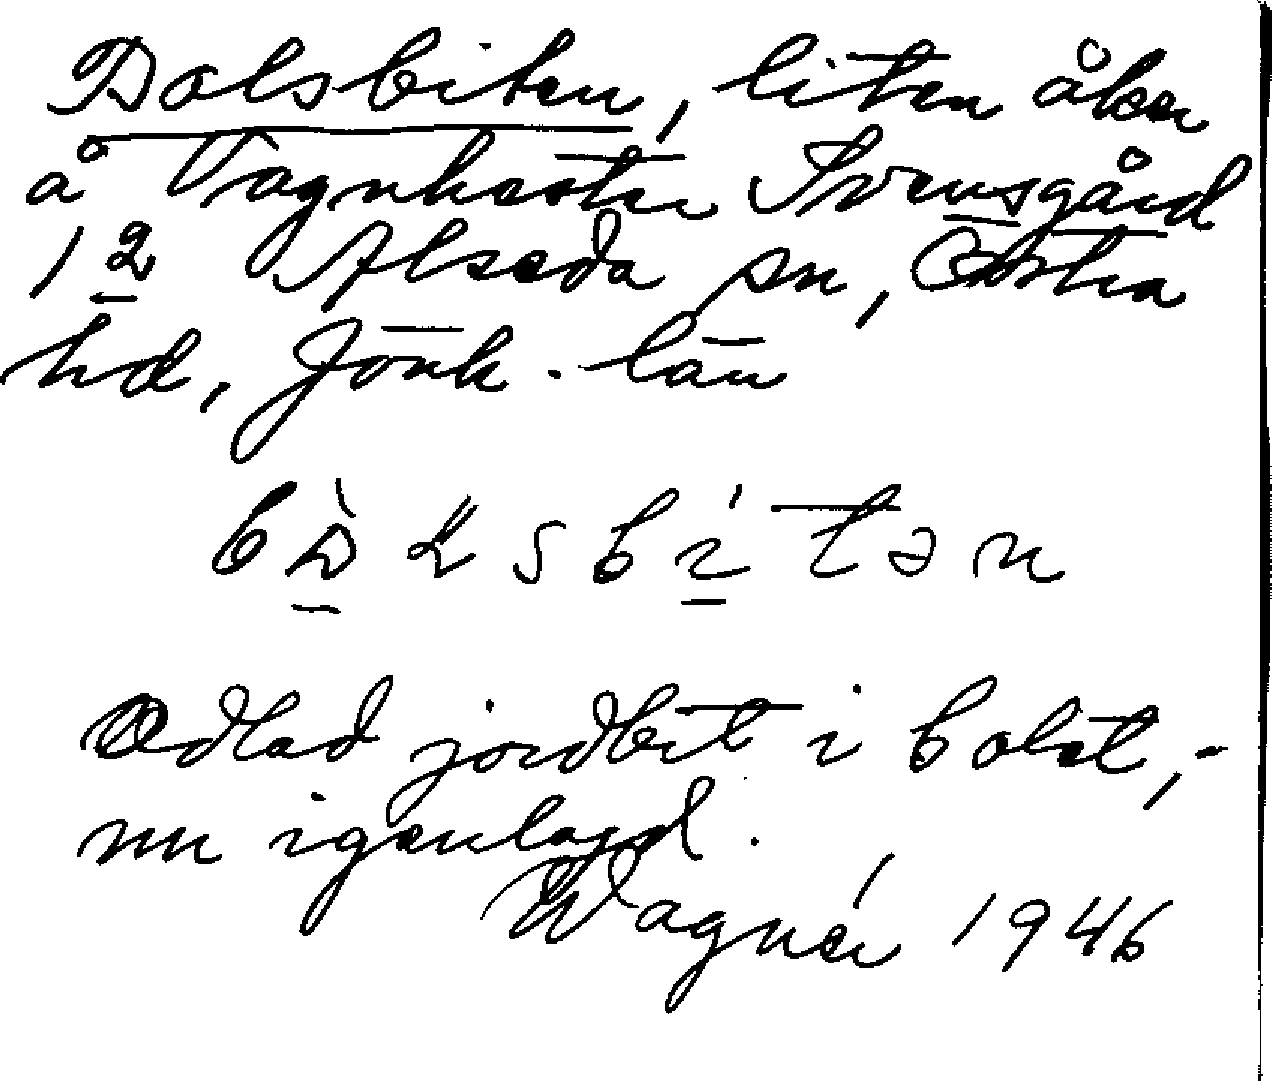 Bolsbiten, liten åker
å Vagnhester Svensgård
1/2 Alseda sn, Östra
hd, Jönk. län
Odlad jordbit i bolet,-
nu igenlagd.
Wagnér 1946